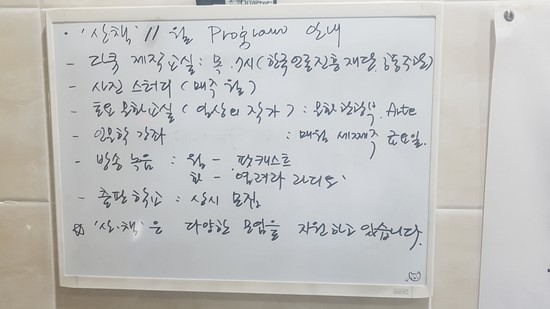 · '산책' 11월 Program 안내
- 다큐 제작교실 : 목. 7시 (한국언론진흥재단 공동주관)
- 사진 스터디 (매주 월)
- 토요 문화교실 (일상의 작가) : 문화관광부. Arte
- 인문학 강좌 : 매월 세째주 금요일.
- 방송 녹음 : 월 - 팟캐스트
화 - 열려라 라디오'
- 출판학교 : 상시 모집
'산책'은 다양한 모임을 지원하고 있습니다.